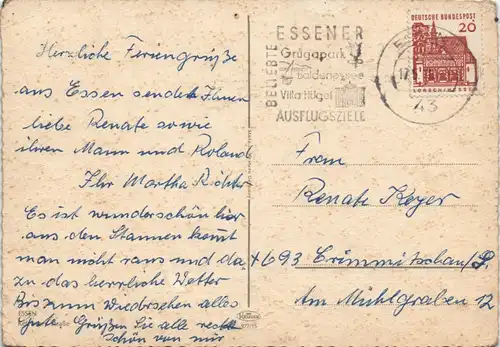 Herzliche Feriengrüße
aus Essen sendet Ihnen
liebe Renate sowie
ihren Mann und Roland
Ihr Martha Richter
Es ist wunderschön hier
aus den Staunen komt
man nicht raus und da-
zu das herrliche Wetter
Bis zum Wiedersehen alles
Gute Grüßen Sie alle recht
schön von mir.
ESSEN
BELIEBTE
ESSENER
Grugapark
Baldeneysee
Villa Hügel
AUSFLUGSZIELE
DEUTSCHE BUNDESPOST
20
43
Frau
Renate Keyer
+693 Crimmitschau/S.
Am Mühlgraben 12